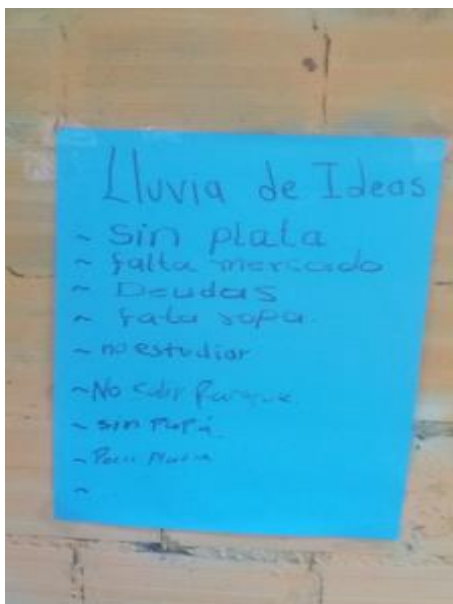 Lluvia de Ideas
~ Sin plata
~ falta mercado
~ Deudas
~ fata ropa.
~ no estudiar
~ No Salir Parque
~ sin Papá.
~
~